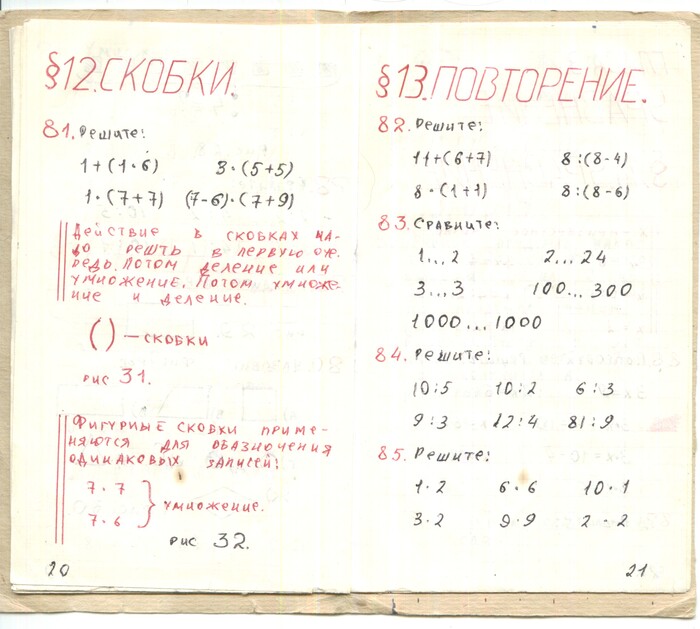 §12.СКОБКИ.
81. Решите:
1+(1·6) 3·(5+5)
1·(7+7) (7-6)·(7+9)
Действие в скобках на-
до решть в первую оче.
редь. Потом деление или
умножение. Потом умноже-
ние и деление.
( ) — скобки
рис 31.
Фигурные сковки приме-
няются для обазночения
одинаковых записей:
7·7
7·6 } умножение.
рис 32.
20
§13.ПОВТОРЕНИЕ.
82. Решите:
11+(6+7) 8:(8-4)
8·(1+1) 8:(8-6)
83. Сравните:
1...2 2...24
3...3 100...300
1000...1000
84. Решите:
10:5 10:2 6:3
9:3 12:4 81:9.
85. Решите:
1·2 6·6 10·1
3·2 9·9 2·2
21